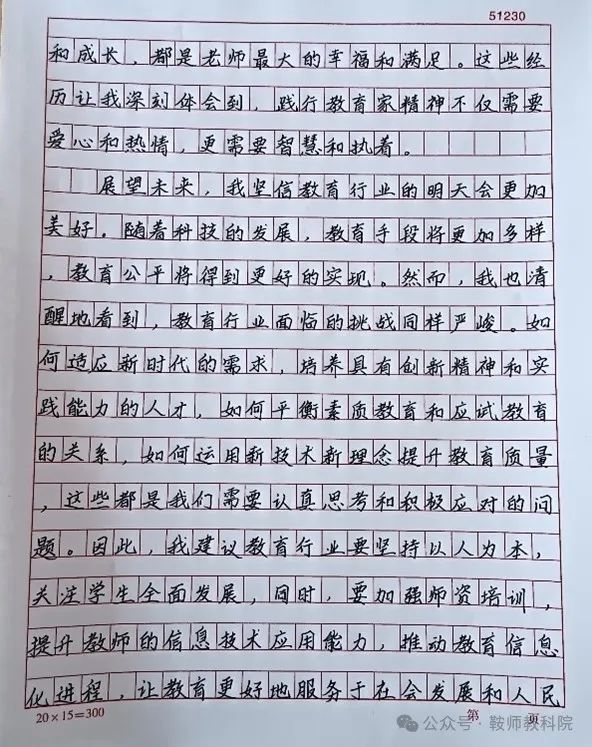 51230
和成长，都是老师最大的幸福和满足。这些经
历让我深刻体会到，践行教育家精神不仅需要
爱心和热情，更需要智慧和执着。
展望未来，我坚信教育行业的明天会更加
美好。随着科技的发展，教育手段将更加多样
，教育公平将得到更好的实现。然而，我也清
醒地看到，教育行业面临的挑战同样严峻。如
何适应新时代的需求，培养具有创新精神和实
践能力的人才，如何平衡素质教育和应试教育
的关系，如何运用新技术新理念提升教育质量
，这些都是我们需要认真思考和积极应对的问
题。因此，我建议教育行业要坚持以人为本，
关注学生全面发展，同时，要加强师资培训，
提升教师的信息技术应用能力，推动教育信息
化进程，让教育更好地服务于在会发展和人民
20×15=300 第 页
公众号·鞍师教科院